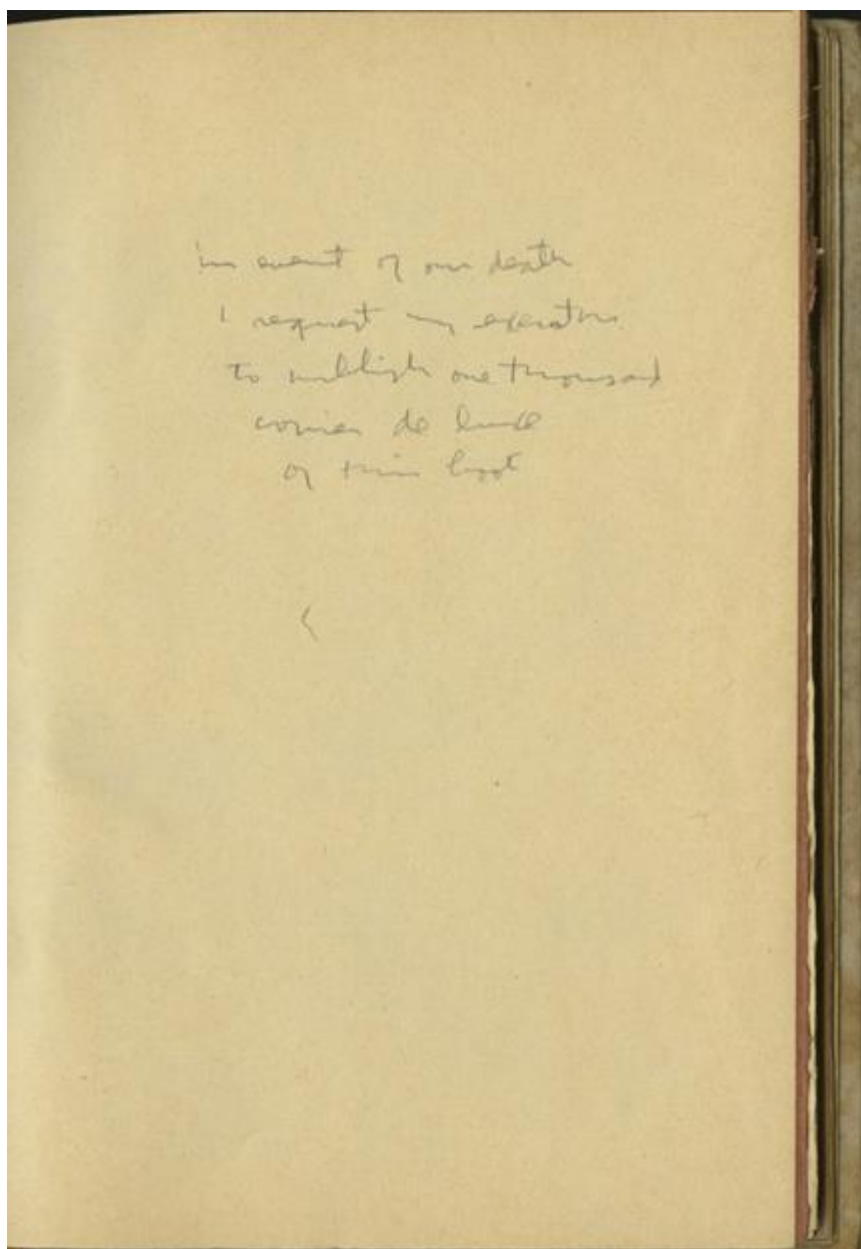 in event of our death
I request my executors
to publish one thousand
copies de luxe
of this book